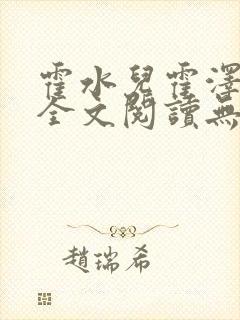 霍水兒霍澤
全文閱讀無
趙瑞希